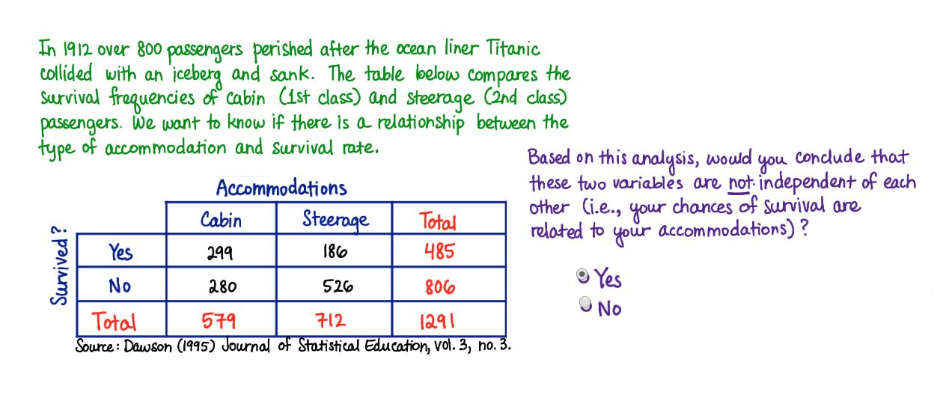 In 1912 over 800 passengers perished after the ocean liner Titanic
collided with an iceberg and sank. The table below compares the
survival frequencies of cabin (1st class) and steerage (2nd class)
passengers. We want to know if there is a relationship between the
type of accommodation and survival rate.
Accommodations
Cabin Steerage Total
Survived?
Yes 299 186 485
No 280 526 806
Total 579 712 1291
Source: Dawson (1995) Journal of Statistical Education, vol. 3, no. 3.
Based on this analysis, would you conclude that
these two variables are not independent of each
other (i.e., your chances of survival are
related to your accommodations)?
Yes
No